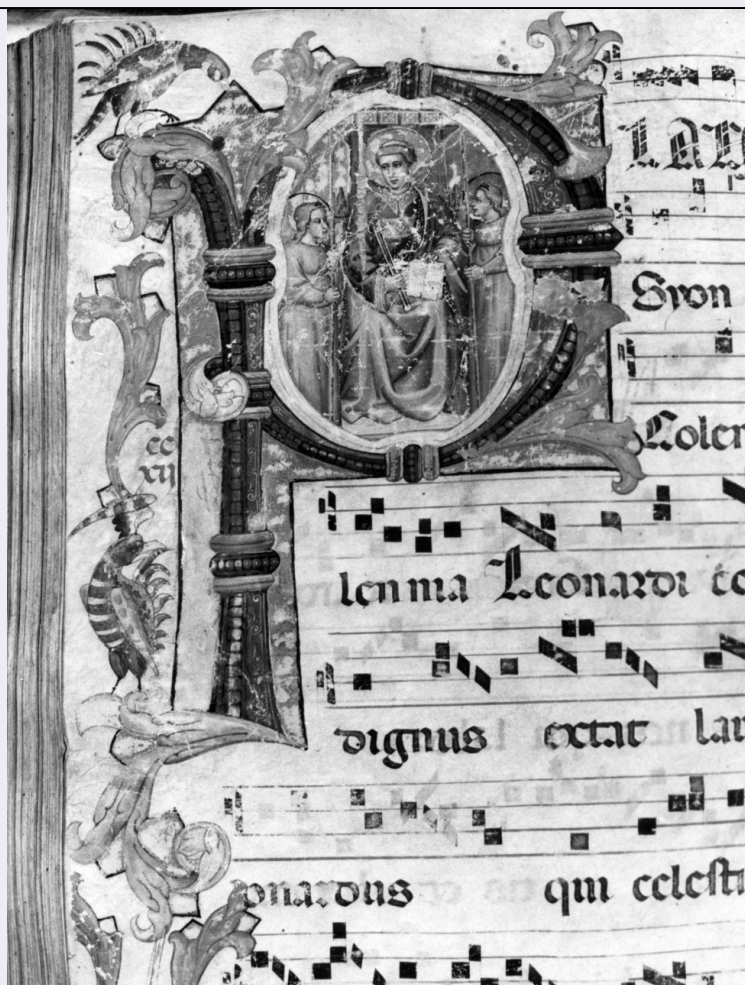 LAN
Syon
Colen
cc
xij
lennia Leonardi ce
dignus extat lau
onardus qui celesti